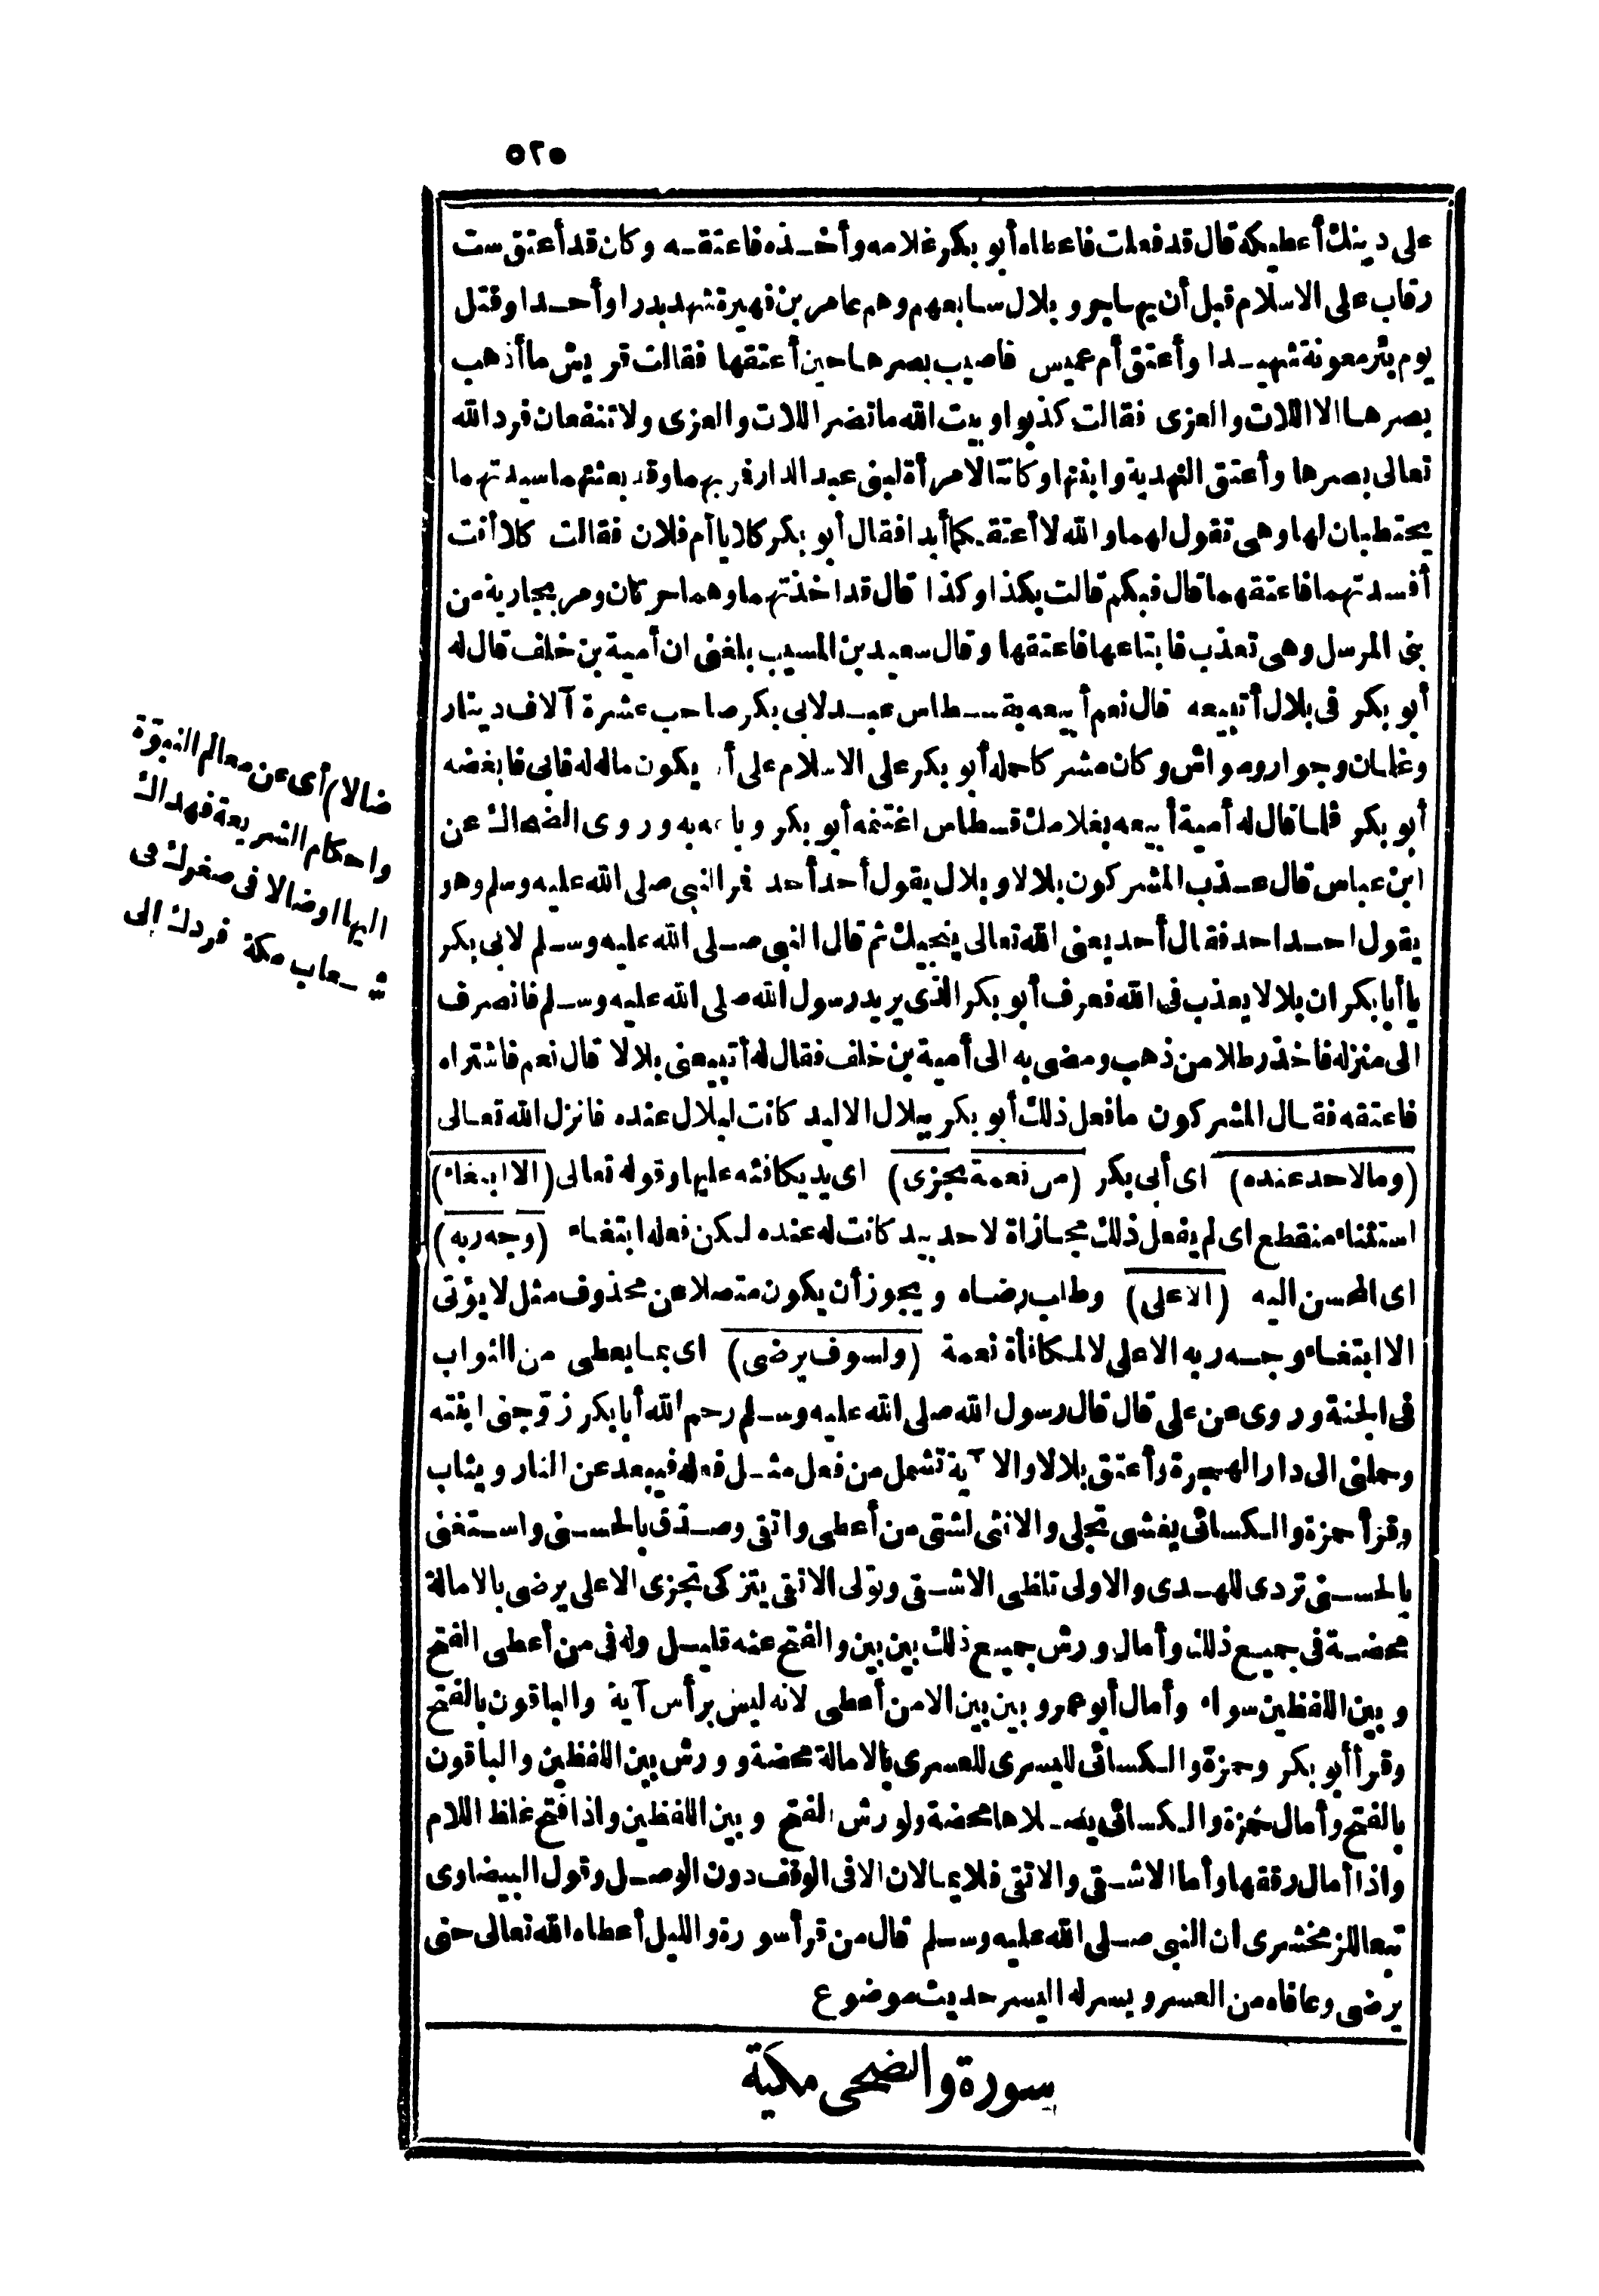 ٥٢٥
على دينك أعطيكه قال قد فعلت فاعطاه أبو بكر غلامه وأخذه فاعتقه وكان قد أعتق ست
رقاب على الاسلام قبل أن يهاجر وبلال سابعهم وهم عامر بن فهيرة شهد بدرا وأحدا وقتل
يوم بئر معونة شهيدا وأعتق أم عميس فاصيب بصرها حين أعتقها فقالت قريش ما أذهب
بصرها الا اللات والعزى فقالت كذبوا وبيت الله ما تضر اللات والعزى ولا تنفعان فرد الله
تعالى بصرها وأعتق النهدية وابنتها وكانتا لامرأة لبنى عبد الدار فمر بهما وقد بعثتهما سيدتهما
يحتطبان لها وهى تقول لهما والله لا أعتقكما أبدا فقال أبو بكر كلا يا أم فلان فقالت كلا أنت
أفسدتهما فاعتقهما قال فبكم قالت بكذا وكذا قال قد اخذتهما وهما حرتان ومر بجارية من
بنى المرسل وهى تعذب فابتاعها فاعتقها وقال سعيد بن المسيب بلغنى ان أمية بن خلف قال له
أبو بكر فى بلال أتبيعه قال نعم أبيعه بقسطاس عبد لابى بكر صاحب عشرة آلاف دينار
وغلمان وجوار ومواش وكان مشركا حمله أبو بكر على الاسلام على أن يكون ماله له فابى فابغضه
أبو بكر فلما قال له أمية أبيعه بغلامك قسطاس اغتنمه أبو بكر وباعه به وروى الضحاك عن
ابن عباس قال عذب المشركون بلالا وبلال يقول أحد أحد فمر النبى صلى الله عليه وسلم وهو
يقول احد احد فقال أحد يعنى الله تعالى ينجيك ثم قال النبى صلى الله عليه وسلم لابى بكر
يا أبا بكر ان بلالا يعذب فى الله فعرف أبو بكر الذى يريد رسول الله صلى الله عليه وسلم فانصرف
الى منزله فاخذ رطلا من ذهب ومضى به الى أمية بن خلف فقال له أتبيعنى بلالا قال نعم فاشتراه
فاعتقه فقال المشركون ما فعل ذلك أبو بكر ببلال الا ليد كانت لبلال عنده فانزل الله تعالى
(وما لاحد عنده) اى أبى بكر (من نعمة تجزى) اى يد يكافئه عليها وقوله تعالى (الا ابتغاء)
استثناء منقطع اى لم يفعل ذلك مجازاة لاحد بيد كانت له عنده لكن فعله ابتغاء (وجه ربه)
اى المحسن اليه (الاعلى) وطلب رضاه ويجوز أن يكون متصلا عن محذوف مثل لا يؤتى
الا ابتغاء وجه ربه الاعلى لا لمكافأة نعمة (ولسوف يرضى) اى بما يعطى من الثواب
فى الجنة وروى عن على قال قال رسول الله صلى الله عليه وسلم رحم الله أبا بكر زوّجنى ابنته
وحملنى الى دار الهجرة وأعتق بلالا والآية تشمل من فعل مثل فعله فيبعد عن النار ويثاب
وقرأ حمزة والكسائى يغشى تجلى والانثى لشتى من أعطى واتقى وصدق بالحسنى واستغنى
بالحسنى تردى للهدى والاولى تلظى الاشقى وتولى الاتقى يتزكى تجزى الاعلى يرضى بالامالة
محضة فى جميع ذلك وأمال ورش جميع ذلك بين بين والفتح عنه قليل وله فى من أعطى الفتح
وبين اللفظين سواء وأمال أبو عمرو بين بين الا من أعطى لانه ليس برأس آية والباقون بالفتح
وقرأ أبو بكر وحمزة والكسائى لليسرى للعسرى بالامالة محضة وورش بين اللفظين والباقون
بالفتح وأمال حمزة والكسائى يصلاها محضة ولورش الفتح وبين اللفظين واذا فتح غلظ اللام
واذا أمال رققها وأما الاشقى والاتقى فلا يمالان الا فى الوقف دون الوصل وقول البيضاوى
تبعا للزمخشرى ان النبى صلى الله عليه وسلم قال من قرأ سورة والليل أعطاه الله تعالى حتى
يرضى وعافاه من العسر ويسر له اليسر حديث موضوع
سورة والضحى مكية
ضالا) أى عن معالم النبوّة
واحكام الشريعة فهداك
اليها او ضالا فى صغرك فى
شعاب مكة فردك الى